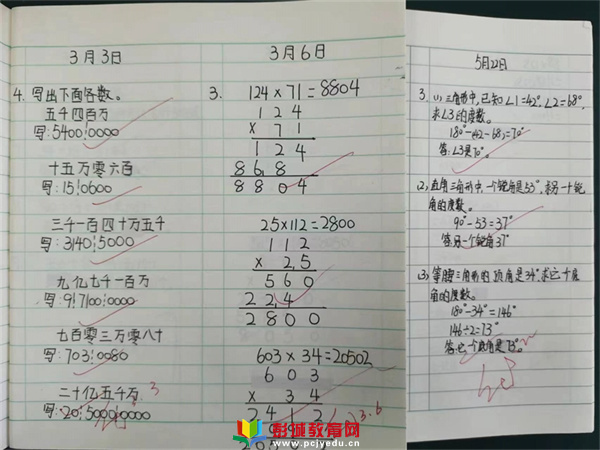 3月3日
4. 写出下面各数。
五千四百万
写:5400¦0000
十五万零六百
写:15¦0600
三千一百四十万五千
写:3140¦5000
九亿七千一百万
写:9¦7100¦0000
七百零三万零八十
写:703¦0080
二十亿五千万
写:20¦5000¦0000
3月6日
3. 124×71=8804
124
×71
124
868
8804
25×112=2800
112
×25
560
224
2800
603×34=20502
603
×34
2412
5月22日
3. (1)三角形中,已知∠1=42°,∠2=68°,
求∠3的度数。
180°-(42-68)=70°
答:∠3是70°。
(2)直角三角形中,一个锐角是53°,求另一个锐
角的度数。
90°-53=37°
答:另一个锐角37°
(3)等腰三角形的顶角是34°,求它一个底
角的度数。
180°-34°=146°
146÷2=73°
答:它一个底角是73°。
彭城教育网
www.pcjyedu.cn